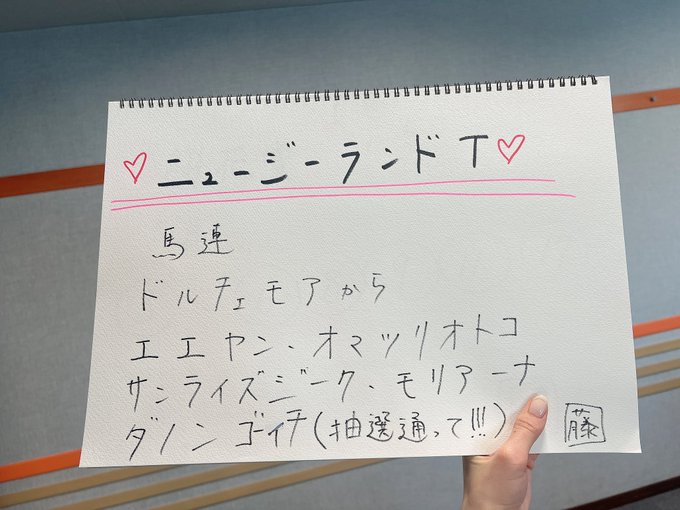 ♡ニュージーランドT♡
馬連
ドルチェモアから
エエヤン、オマツリオトコ
サンライズジーク、モリアーナ
ダノンゴーイチ(抽選通って!!!)
藤